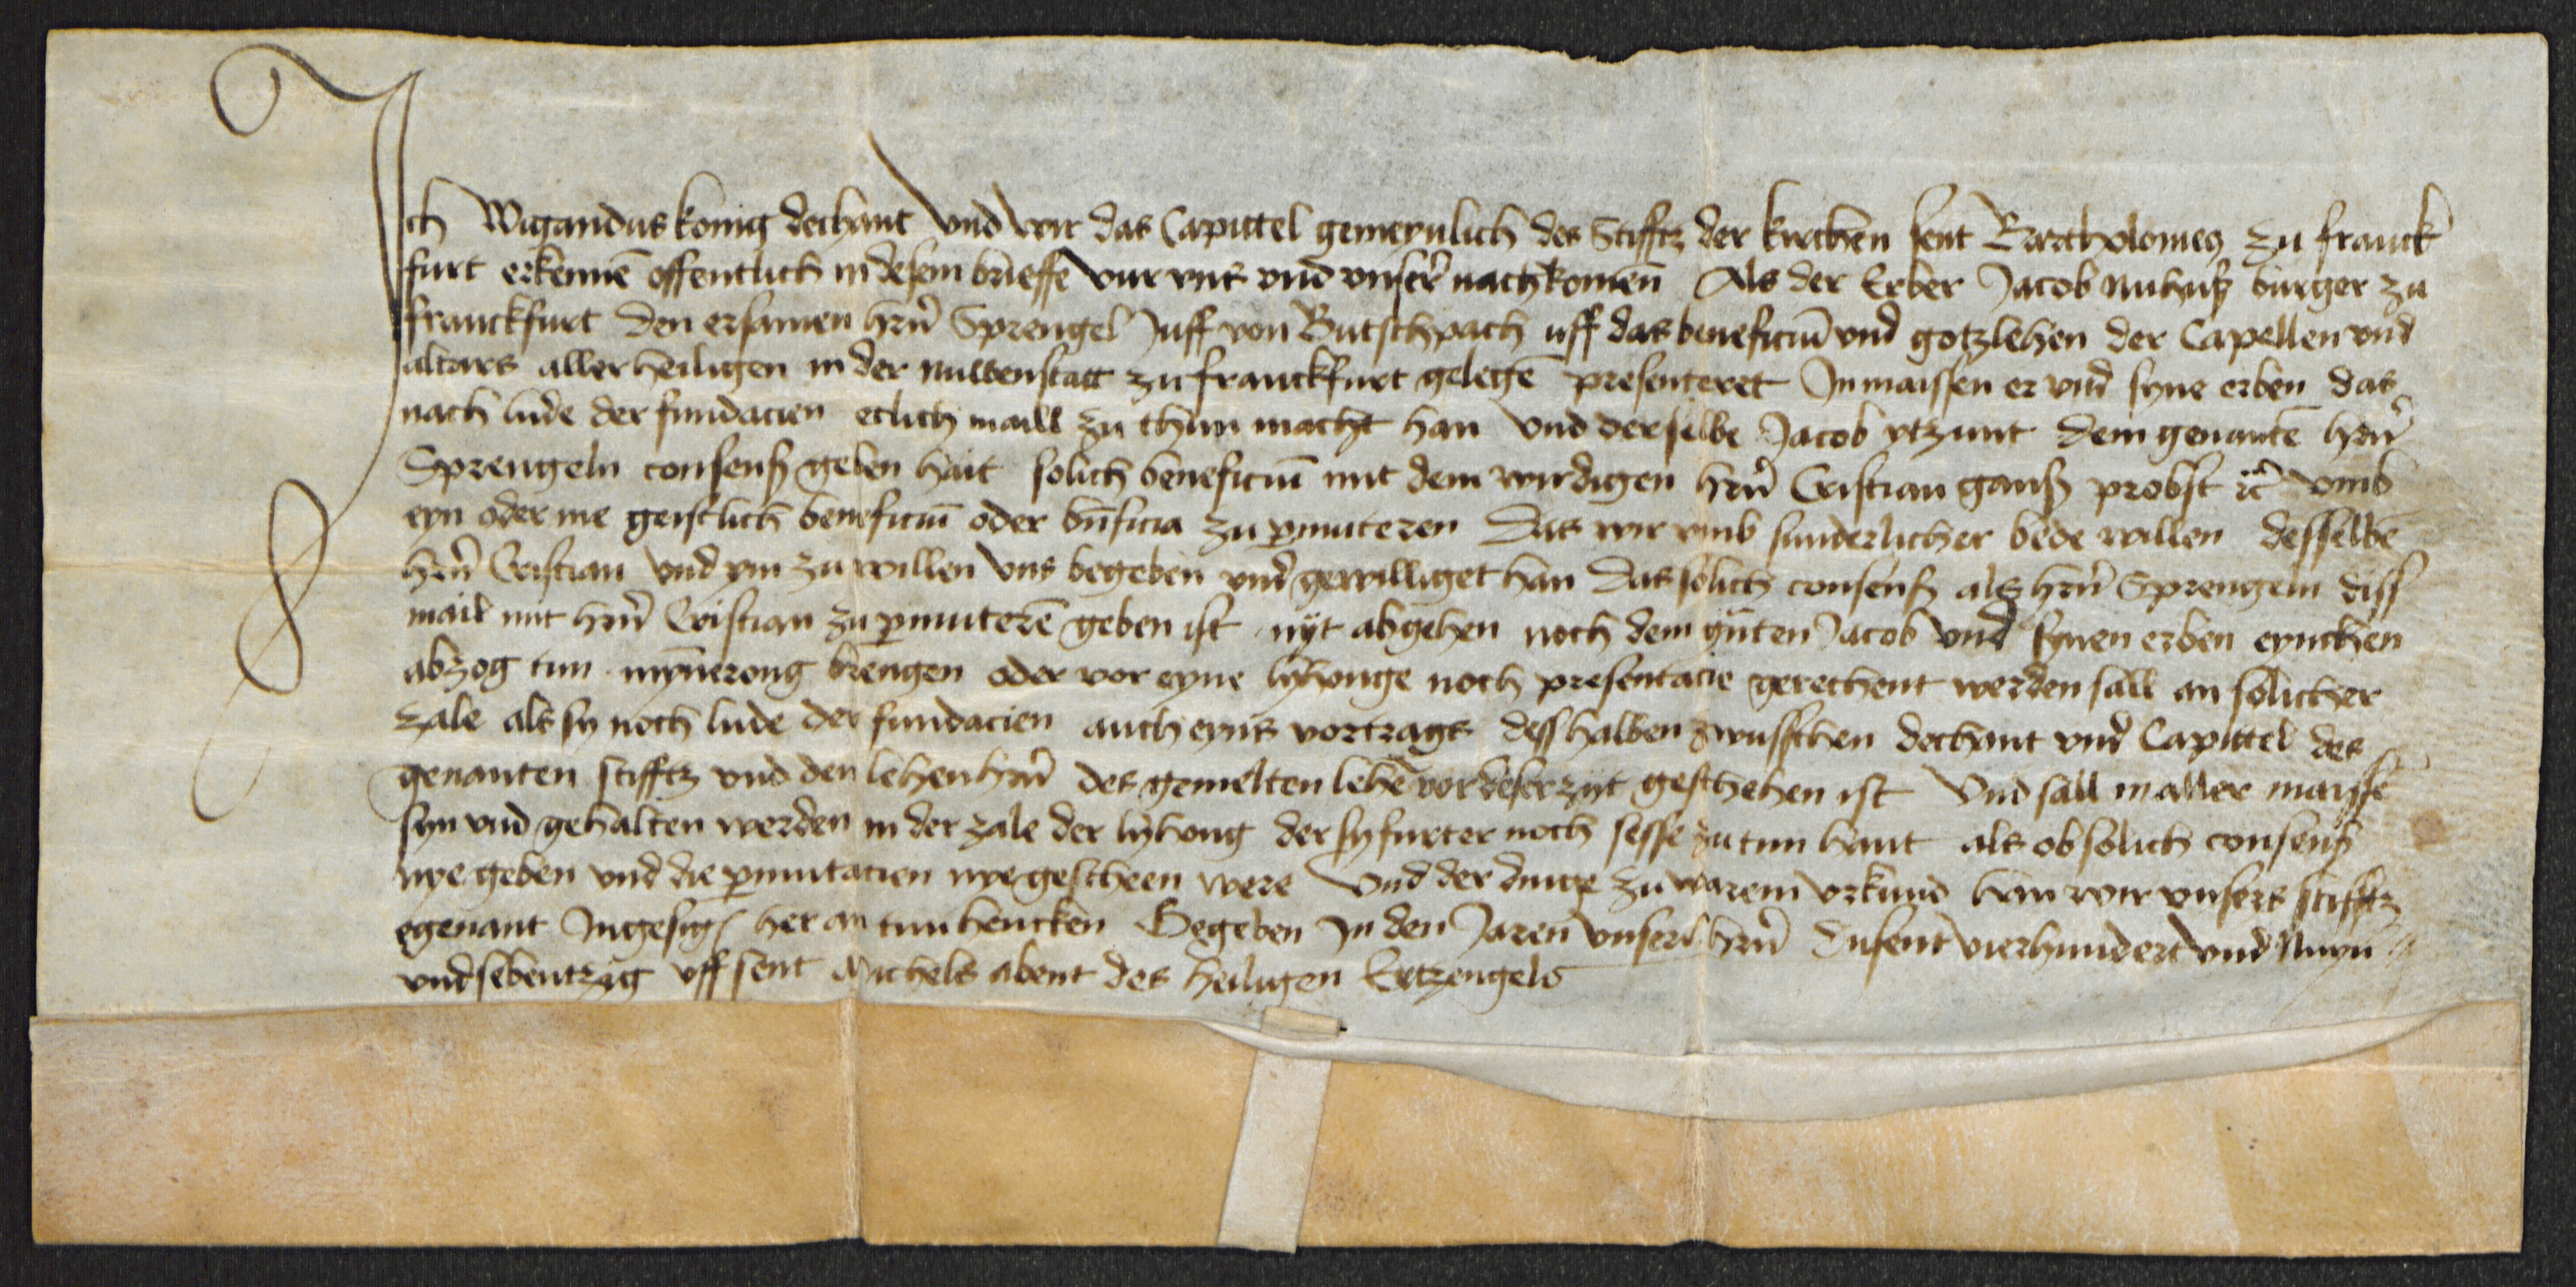 Ich Wigandus konig dechant Vnd wir das Capittel gemeynlich des Stifftz der kirchen sent Bartholomes zu franck
furt erkennē offentlich in desem brieffe vur vns vnd vnser nachkomen Als der Erber Jacob nuhuß burger zu
franckfurt den ersamen hrn Sprengel Juff von Butschpach uff das beneficiū vnd gotzlehen der Capellen vnd
altars aller heiligen in der nuwenstatt zu franckfurt gelegē presenteret In maissen er vnd syne erben das
nach lude der fundacien etlich maill zu thun macht han Vnd derselbe Jacob ytzunt dem genantē hrn
Sprengeln consenß geben hait solich beneficiū mit dem wirdigen hrn Cristian ganß probst ꝛc vmb
eyn oder me geistlich beneficiū oder bn̄ficia zu ꝑmuteren Das wir vmb sunderlicher bede willen desselbē
hrn Cristian Vnd ym zu willen Vns begeben vnd gewilliget han Das solich consenß als hrn Sprengeln diss
mail mit hrn Cristian zu ꝑmuterē geben ist nyt abgehen noch dem gn̄ten Jacob vnd synen erben eynichen
abzog tun mynerong brengen oder vor eyne lyhonge noch presentacie gerechent werden sall an solicher
zale als sy noch lude der fundacien auch eyns vortrags desshalben zwusschen dechant vnd Capittel des
genanten stifftz vnd den lehenhrn des gemelten lehē vor deser zyt geschehen ist Vnd sall in aller maissē
syn vnd gehalten werden in der zale der lyhong der sy furter noch sesse zu tun hant als ob solich consenß
nye geben vnd die ꝑmutacien nye gescheen were Vnd der dinge zu warem vrkund han wir vnsers stifftz
egenant Ingesigꝭ her an tun hencken Gegeben In den Jaren vnsers hrn Dusent vierhundert vnd Nuyn
vnd sebentzig vff sent Michels abent des heiligen Ertzengels